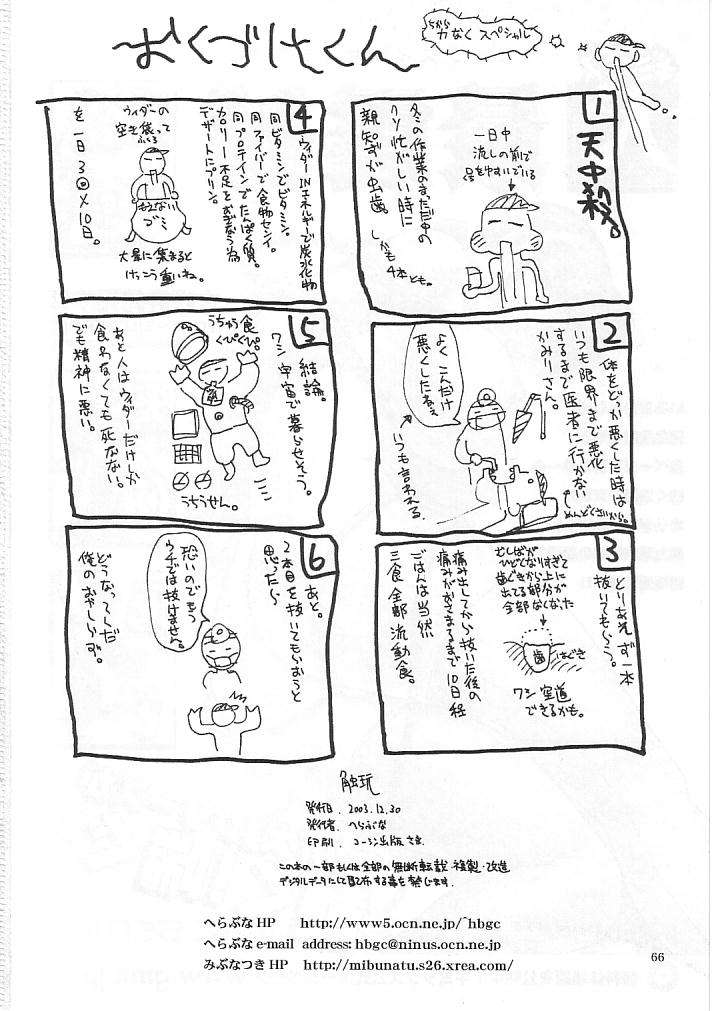 おくづけくん
ちから
力なく スペシャル
1
天中殺。
一日中
流しの前で
口をゆすいでいる
冬の作業のまっただ中の
クソ忙がしい時に
親知ずが虫歯。
しかも4本とも。
2
体をどっか悪くした時は
いつも限界まで悪化
するまで医者に行かない
かみりさん。
めんどくさいから。
よくこんだけ
悪くしたねぇ
いつも言われる
3
とりあえず一本
抜いてもらう。
ひどくなりすぎて
歯ぐきから上に
出てる部分が
全部なくなった
歯
はぐき
ワシ 空道
できるかも。
痛み出してから抜いた後の
痛みがおさまるまで10日 経
ごはんは当然
三食全部流動食。
4
ウィダーINエネルギーで炭水化物
同ビタミンでビタミン。
同ファイバーで食物センイ。
同プロテインでたんぱく質。
カロリー不足をおぎなう為
デザートにプリン。
を一日3回×10日。
ウィダーの
空き袋って
もえない
ゴミ
大量に集まると
けっこう重いね。
5
結論。
ワシ宇宙で暮らせそう。
うちゅう食
くぴくぴ。
うちうせん。
あと人はウィダーだけしか
食わなくても死なない。
でも精神に悪い。
6
あと。
2本目を抜いてもらおうと
思ったら
恐いのでもう
ウチでは抜けません。
どうなってんだ
俺のおやしらず。
触玩
発行日. 2003.12.30
発行者. へらぶな
印刷. コーシン出版さま
この本の一部もしくは全部の無断転載・複製・改造
デジタルデータにして配布する事を禁じます.
へらぶな HP http://www5.ocn.ne.jp/~hbgc
へらぶな e-mail address: hbgc@ninus.ocn.ne.jp
みぶなつき HP http://mibunatu.s26.xrea.com/
66